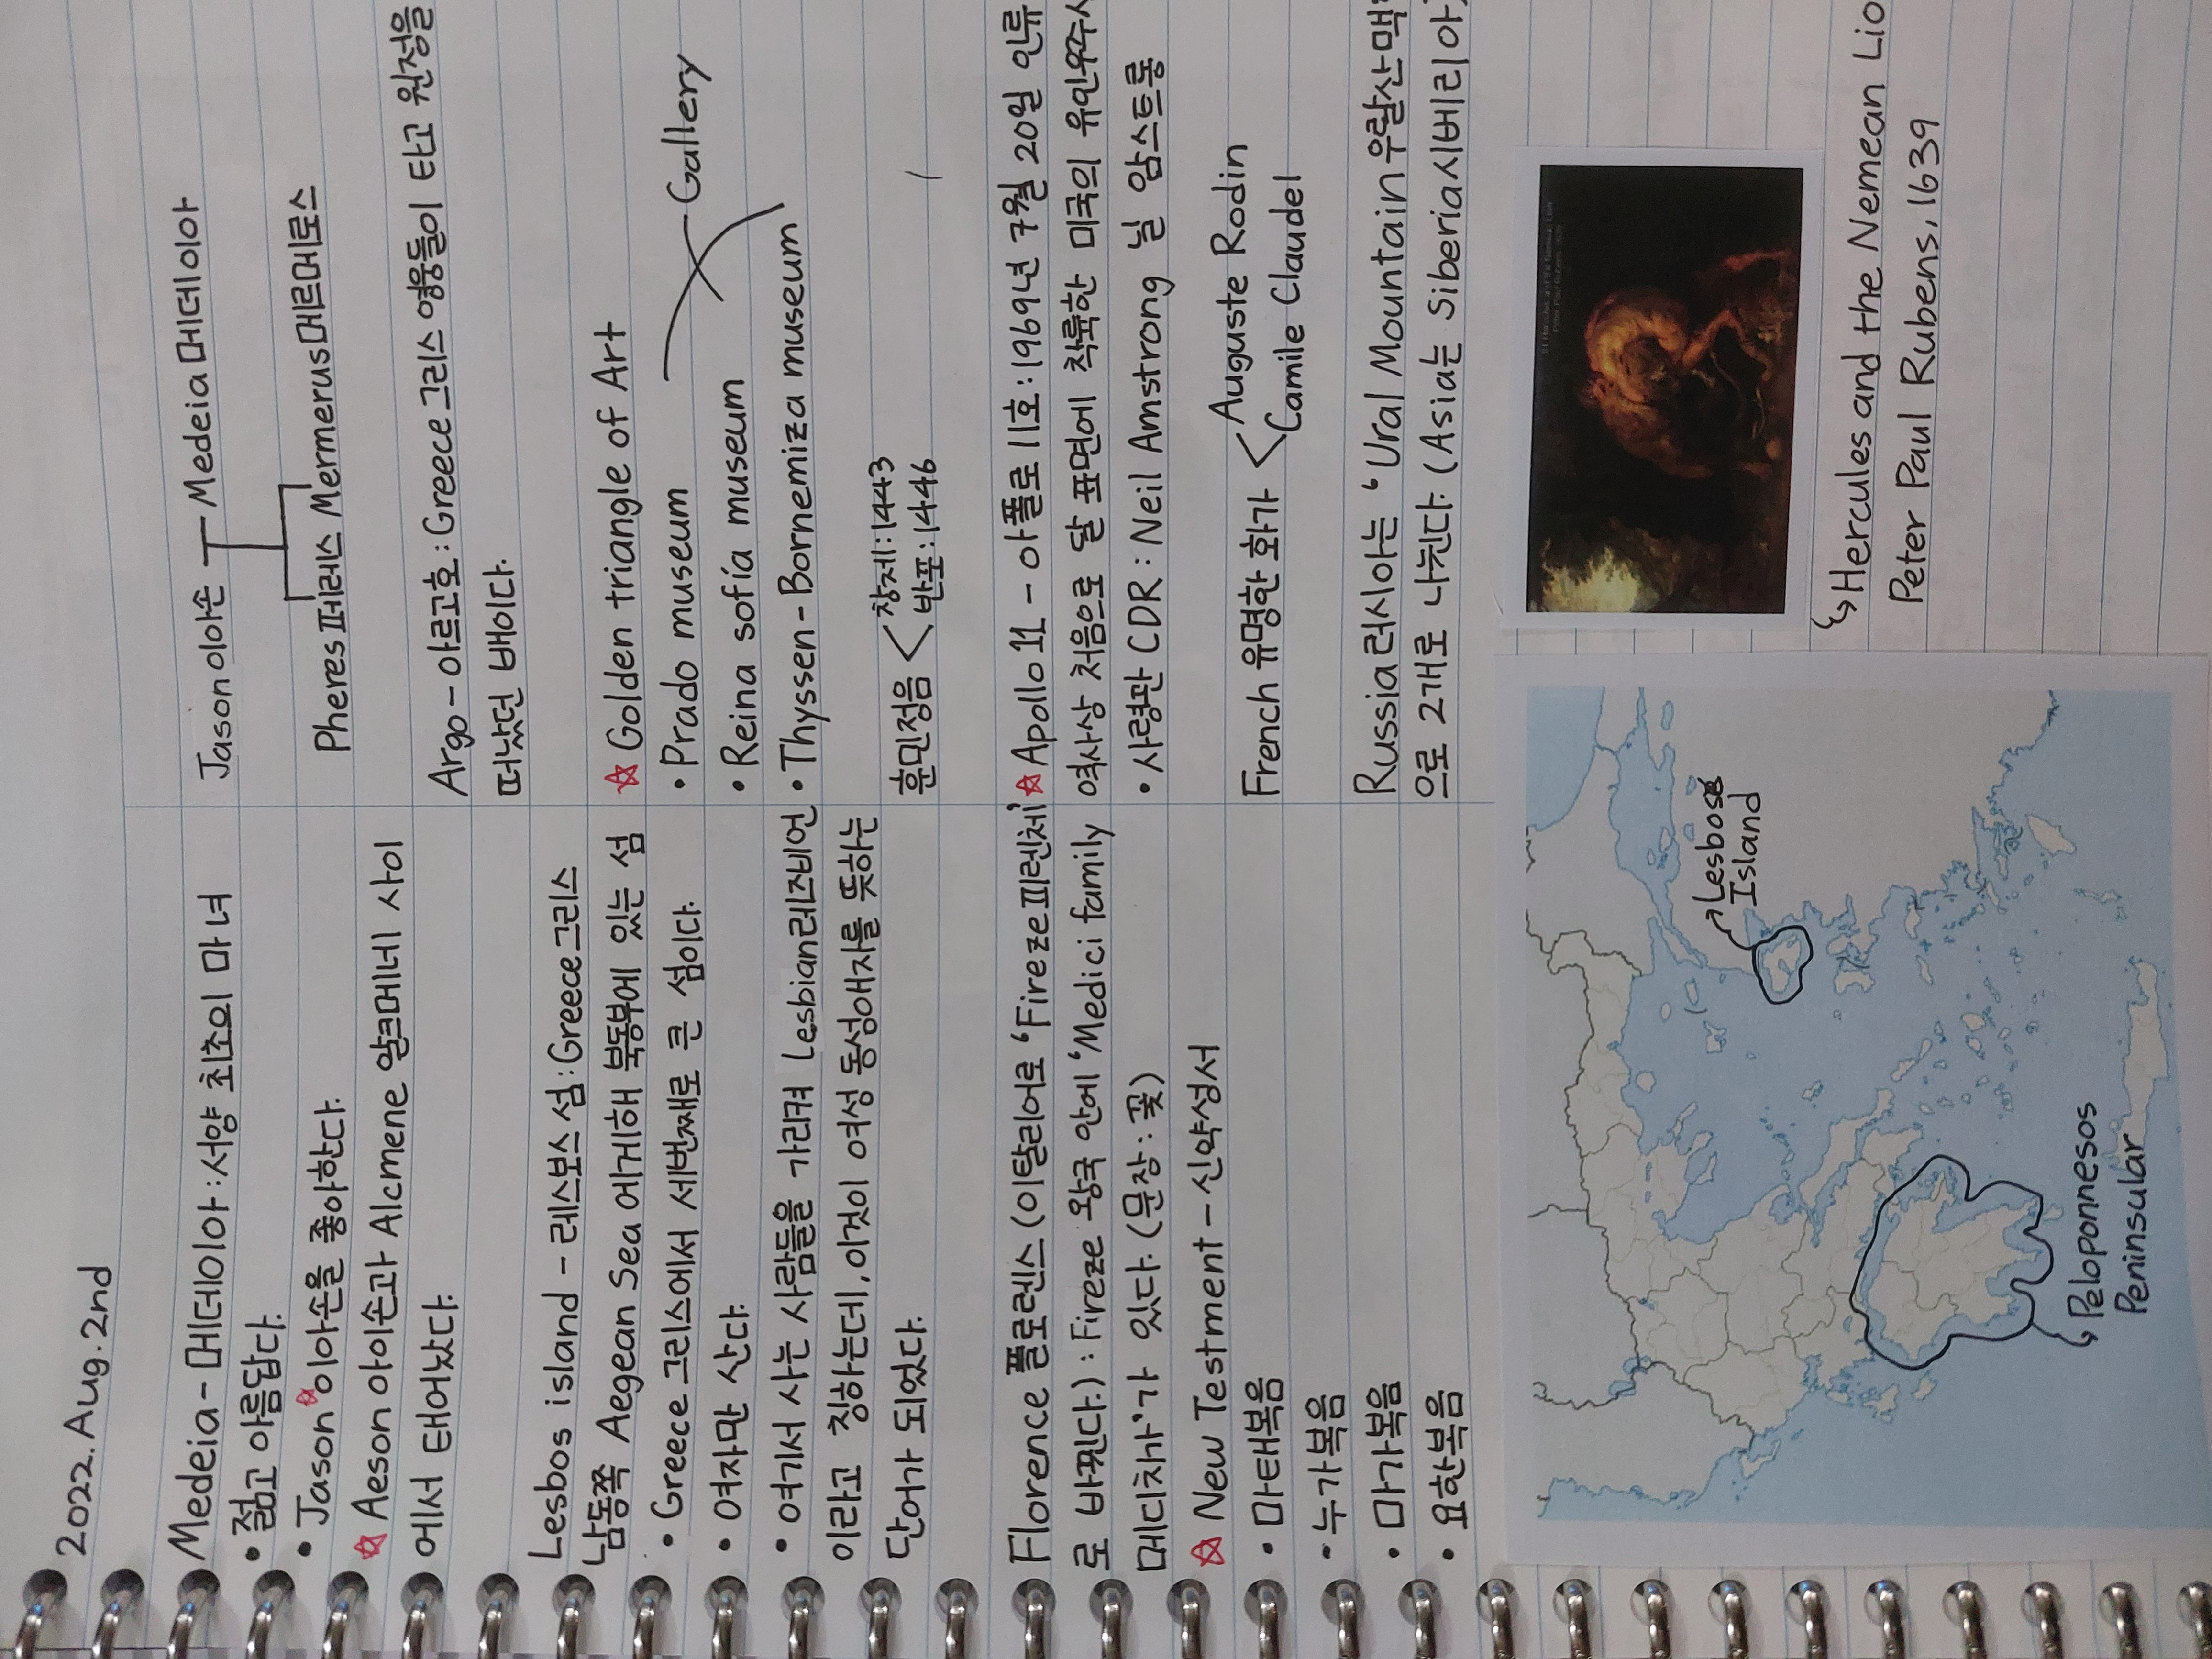 2022. Aug. 2nd
Medeia - 메데이아 : 서양 최초의 마녀
• 젊고 아름답다.
• Jason☆이아손을 좋아한다.
☆ Aeson 아이손과 Alcmene 알크메네 사이
에서 태어났다.
Lesbos island - 레스보스 섬 : Greece 그리스
남동쪽 Aegean Sea 에게해 북동부에 있는 섬
• Greece 그리스에서 세번째로 큰 섬이다.
• 여자만 산다.
• 여기서 사는 사람들을 가리켜 Lesbian레즈비언
이라고 칭하는데, 이것이 여성 동성애자를 뜻하는
단어가 되었다.
Florence 플로렌스 (이탈리어로 'Fireze피렌체'
로 바뀐다.) : Fireze 왕국 안에 'Medici family
메디치가'가 있다. (문장 : 꽃)
☆ New Testment - 신약성서
• 마태복음
• 누가복음
• 마가복음
• 요한복음
Jason 이아손 Medeia메데이아
Pheres페레스 Mermerus메르메로스
Argo - 아르고호 : Greece 그리스 영웅들이 타고 원정을
떠났던 배이다.
☆ Golden triangle of Art
• Prado museum
Gallery
• Reina sofía museum
• Thyssen - Bornemiza museum
훈민정음 < 창제 : 1443
반포 : 1446
☆ Apollo 11 - 아폴로 11호 : 1969년 7월 20일 인류
역사상 처음으로 달 표면에 착륙한 미국의 유인우주
• 사령관 CDR : Neil Amstrong 닐 암스트롱
French 유명한 화가 < Auguste Rodin
Camile Claudel
Russia 러시아는 'Ural Mountain 우랄산맥
으로 2개로 나뉜다. (Asia는 Siberia시베리아
Lesbos
Island
Peloponnesos
Peninsular
Hercules and the Nemean Lio
Peter Paul Rubens, 1639